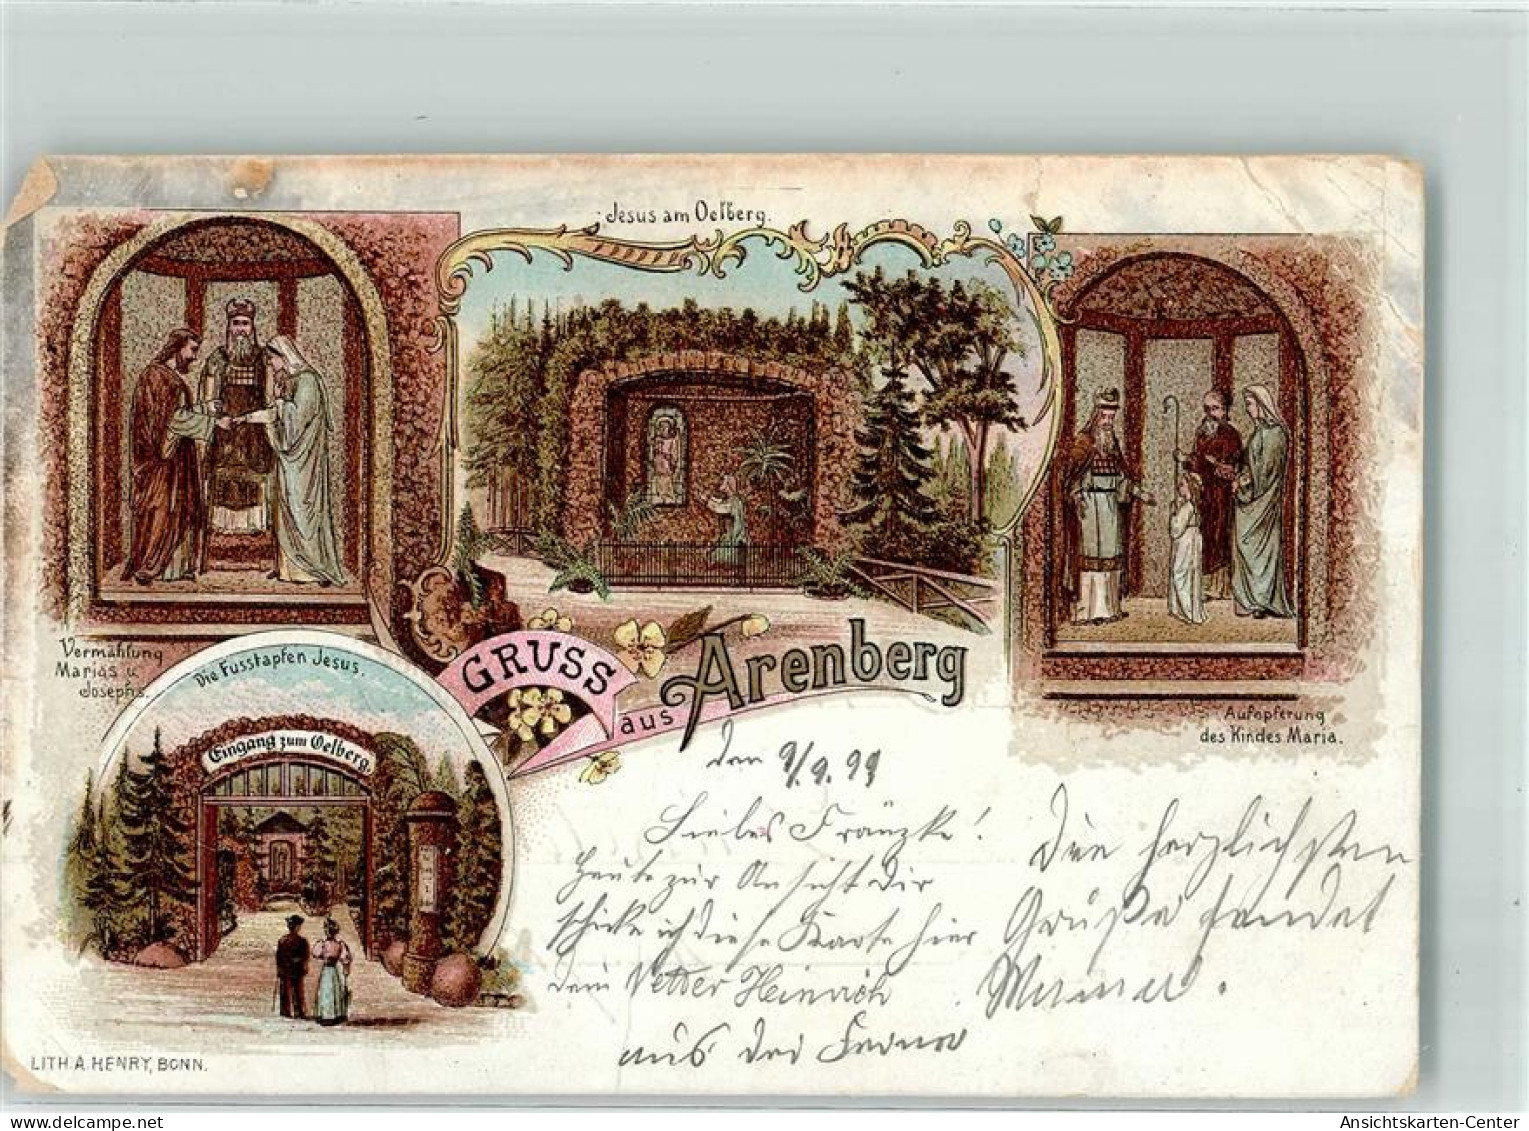 Jesus am Oelberg.
Vermählung
Marias u.
Josephs.
Die Fusstapfen Jesus.
Eingang zum Oelberg.
GRUSS
aus
Arenberg
Aufopferung
des Kindes Maria.
den 9/9. 99
Liebes Fränzke!
Heute zur Ansicht dir
schicke ich diese Karte hier
dein Vetter Heinrich
aus der
Die herzlichsten
Grüße sendet
LITH. A. HENRY, BONN.
Ansichtskarten-Center